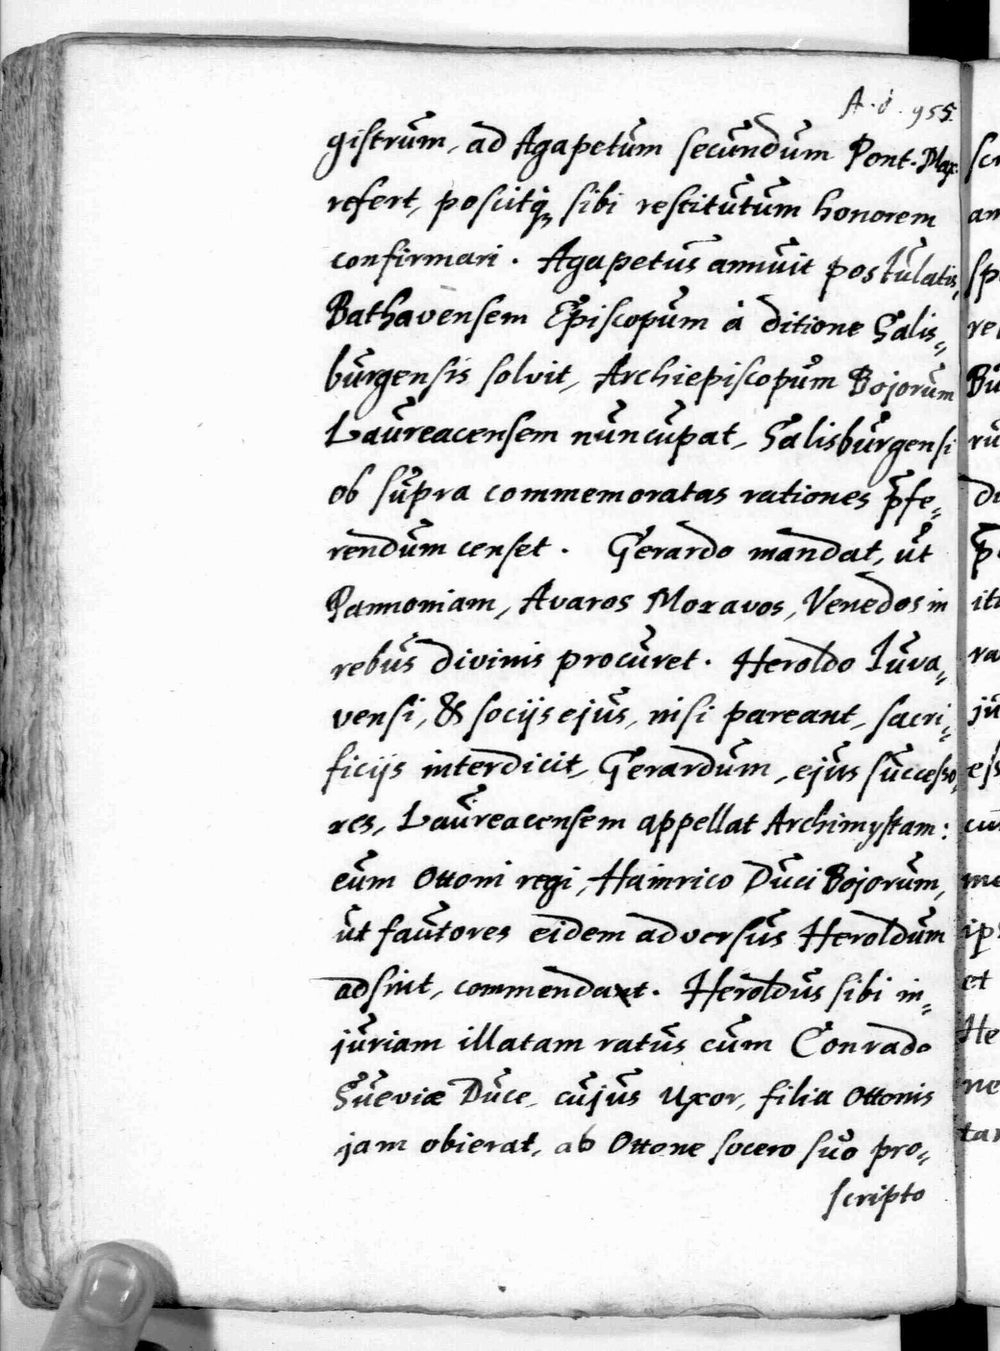 A. d. 955.
gistrum, ad Agapetum secundum Pont. Max.
refert, poscitq₃ sibi restitutum honorem
confirmari. Agapetus annuit postulatis,
Bathavensem Episcopum à ditione Salis„
burgensis solvit, Archiepiscopum Bojorum
Laureacensem nuncupat, Salisburgensi
ob supra commemoratas rationes p̄fe„
rendum censet. Gerardo mandat, ut
Pannoniam, Avaros Moravos, Venedos in
rebus divinis procuret. Heroldo Iuva„
vensi, & socijs ejus, nisi pareant, sacri„
ficijs interdicit, Gerardum, ejus successo„
res, Laureacensem appellat Archimystam:
eum Ottoni regi, Hainrico Duci Bojorum,
ut fautores eidem adversus Heroldum
adsint, commendat. Heroldus sibi in„
juriam illatam ratus cum Conrado
Sueviæ Duce, cujus Uxor, filia Ottonis
jam obierat, ab Ottone socero suo pro„
scripto